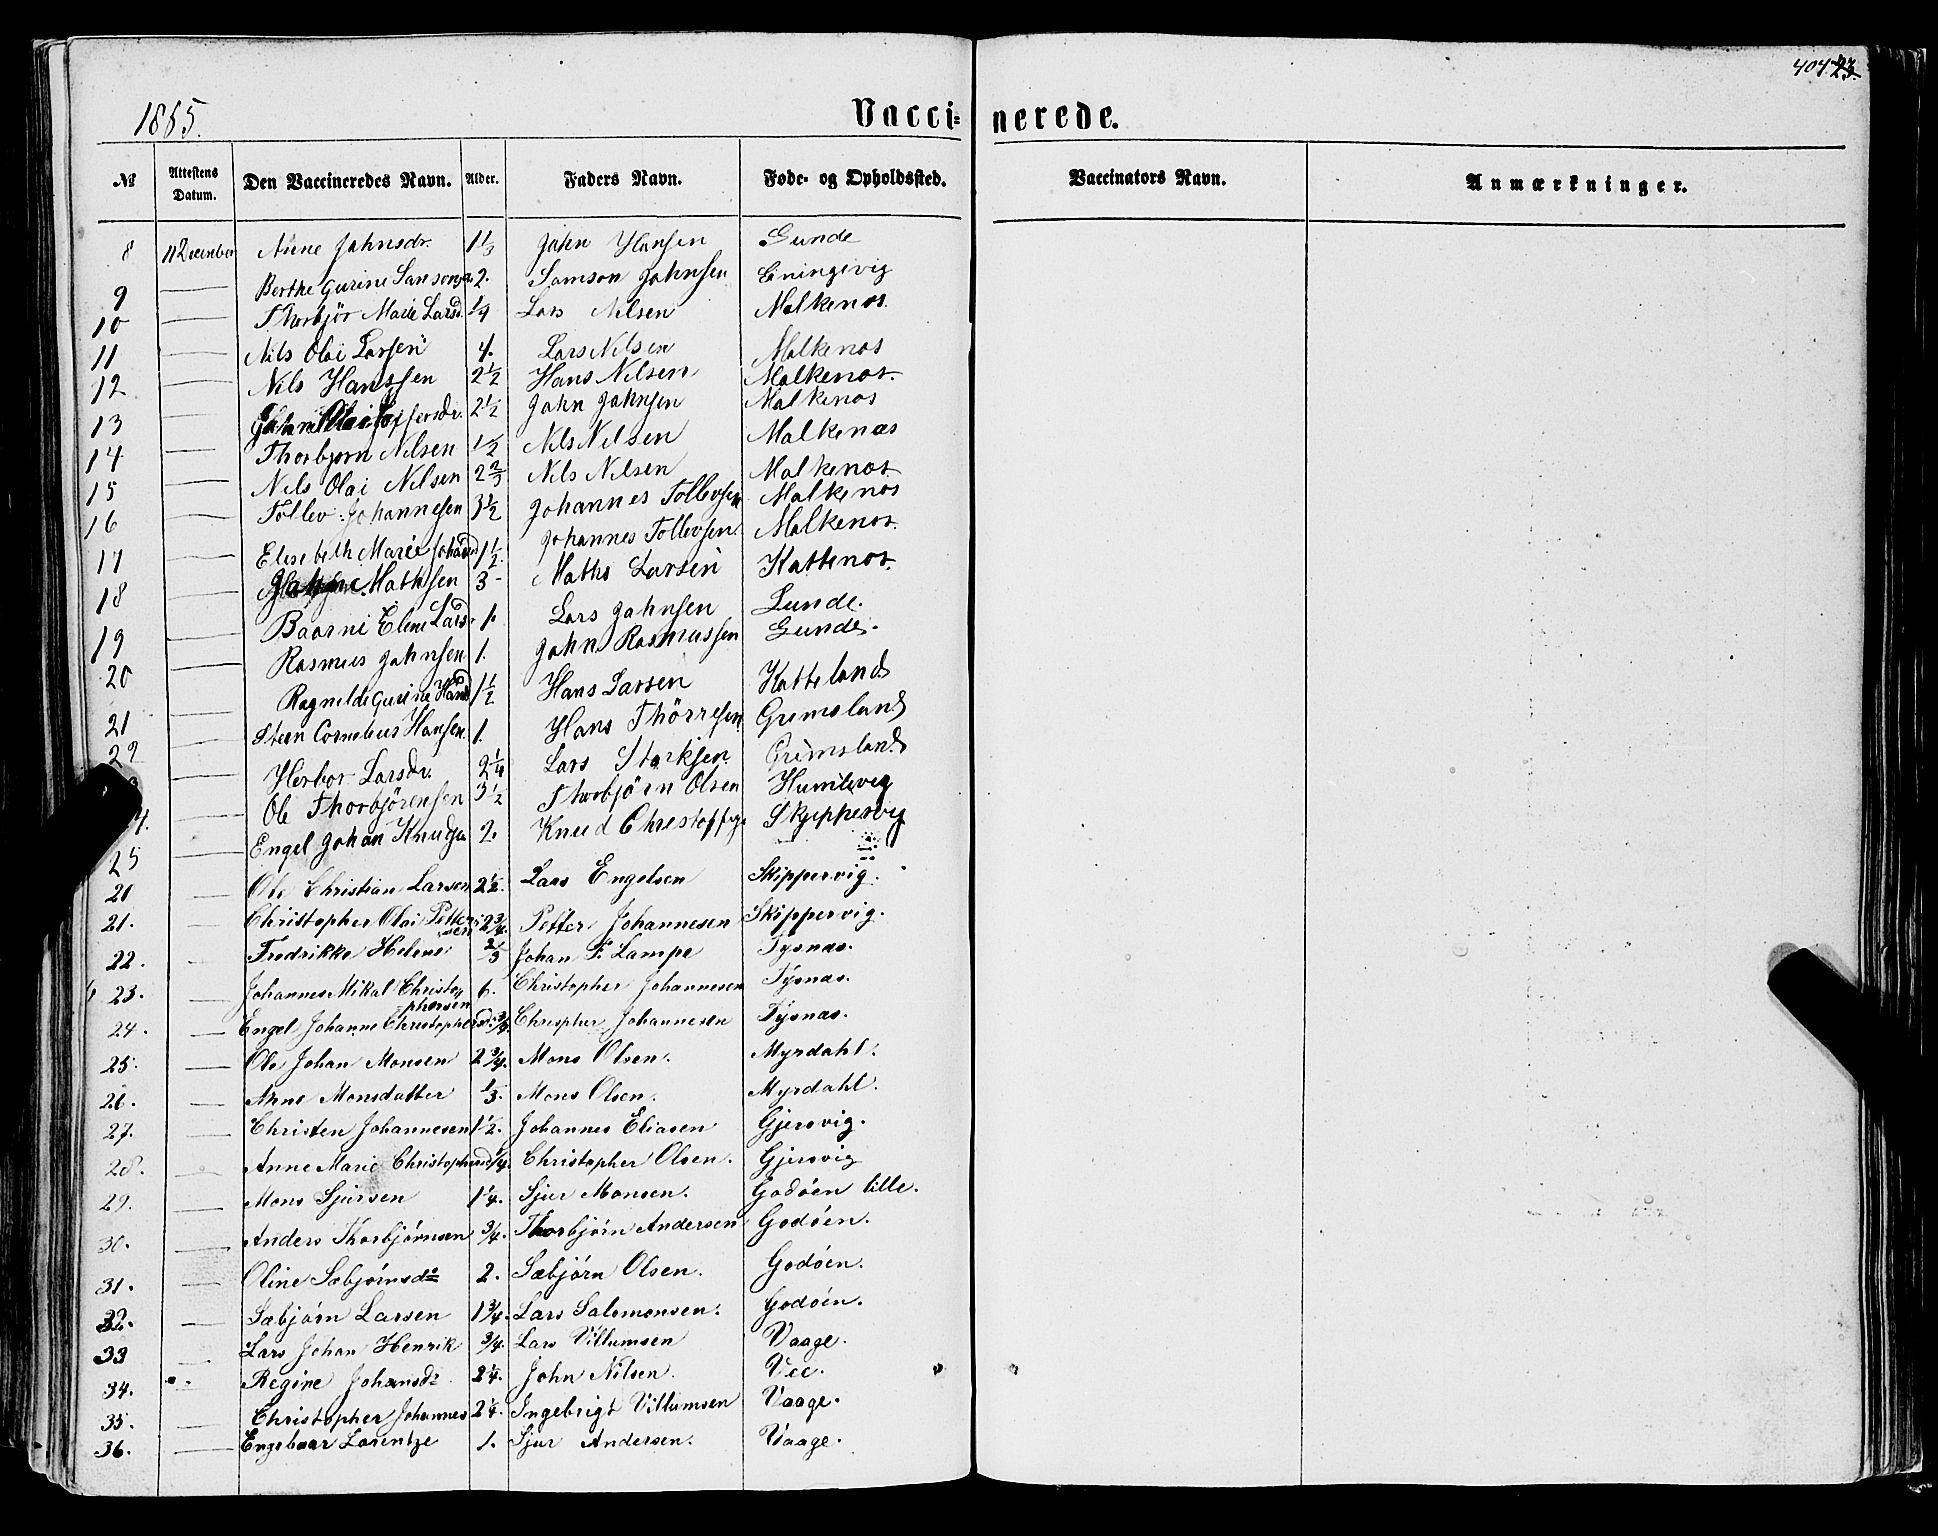 404
1865.
Vacci= nerede.
№ Attestens Datum. Den Vaccineredes Navn. Alder. Faders Navn. Føde- og Opholdssted. Vaccinators Navn. Anmærkninger.
8 December Anne Johnsdr. 1⅓ John Hansen Gunde
9 Berthe Gurine 2. Samson Johnsen
10 Thorbjör Marie Larsd. ¼ Lars Nilsen Malkenos
11 Nils Olai Larsen 4. Lars Nilsen Malkenos
12 Nils Hansen 2½ Hans Nilsen Malkenos.
13 2½ John Johnsen Malkenos
14 Thorbjorn Nilsen 1½ Nils Nilsen Malkenæs
15 Nils Olai Nilsen 2⅔ Nils Nilsen Malkenos
16 Tollev Johannesen 3½ Johannes Tollevsen Malkenos
17 Elisebeth Marie 1½ Johannes Tollevsen. Malkenos.
18 Mathsen 3 - Maths Larsen Kattenos.
19 Baarni Eline Larsd. 1. Lars Johnsen Lunde.
20 Rasmus Johnsen 1. John Rasmussen Gunde.
Ragnilde Gurine Hansd 1½ Hans Larsen Katteland
21 Steen Cornelius Hansen. 1. Hans Thörresen Gremsland
22 Herbor Larsdr. 2¼ Lars Storksen Gremsland
Ole Thorbjörensen 3½ Thorbjörn Olsen Humlevig
4. Engel Johan Knudsen 2. Knud Skjippervig
25
20 Ole Christian Larsen 2½. Lars Engelsen Skippervig.
21. Christopher Olai Petter=
sen 2¾. Petter Johannesen Skippervig.
22. Fredrikke Helene ⅔ Johan F. Lampe Tysnæs.
23. Johannes Mikal Christo=
phersen 6. Christopher Johannesen Tysnæs.
24. Engel Johanne Christophersd: ¾. Chrispher Johannesen Tysnæs.
25. Ole Johan Monsen 2¾. Mons Olsen. Myrdahl.
26. Anne Monsdatter ⅓. Mons Olsen. Myrdahl.
27. Christen Johannesen 1½. Johannes Eliasen Gjersvig.
28. Anne Marie Christophersd ¼. Christopher Olsen. Gjersvig
29. Mons Sjursen 1¼. Sjur Monsen. Godöen lille.
30. Anders Thorbjörnsen ¾. Thorbjörn Andersen Godöen.
31. Oline Sæbjörnsd: 2. Sæbjörn Olsen. Godöen.
32. Sæbjörn Larsen 1¾. Lars Salomonsen. Godöen.
33 Lars Johan Henrik ¾. Lars Villumsen Vaage.
34. Regine Johansd: 2¼. John Nilsen. Vee.
35. Christopher Johannes 2¼. Ingebrigt Villumsen Vaage.
36. Engebaar Lorentze 1. Sjur Andersen. Vaage.